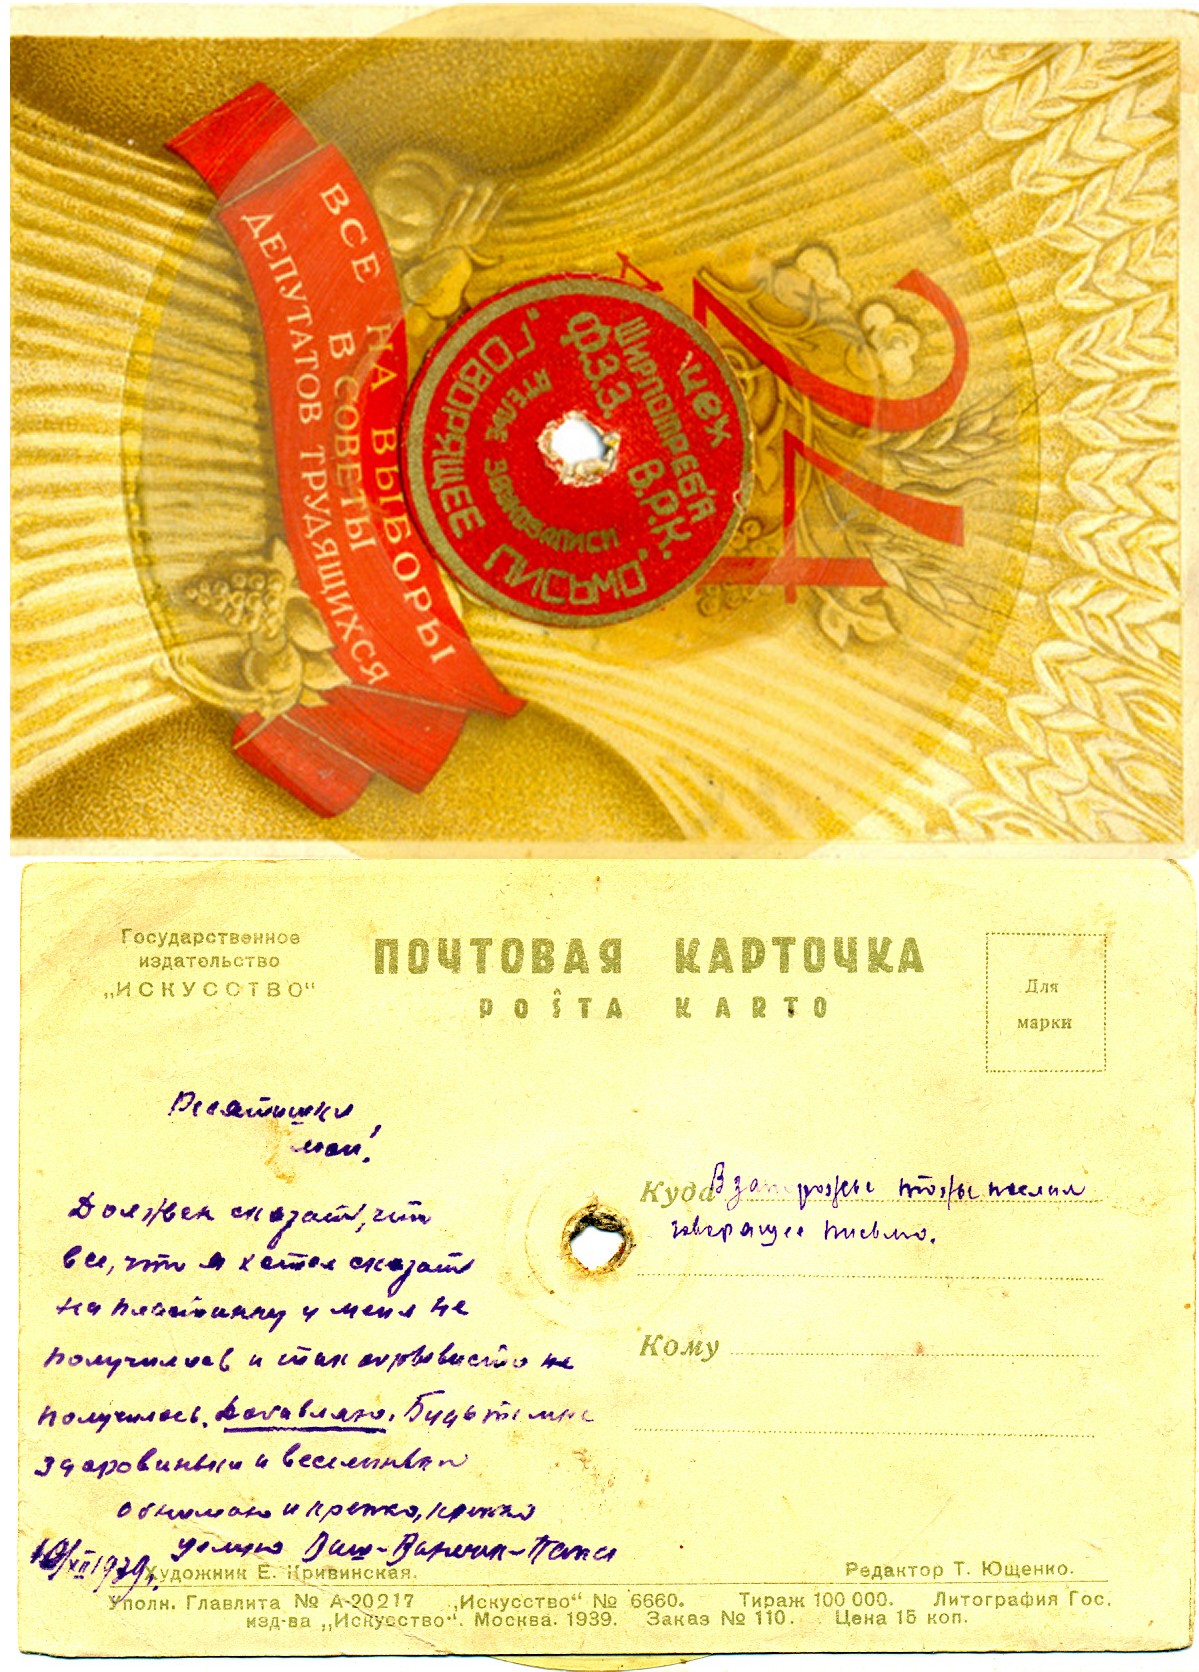 ВСЕ НА ВЫБОРЫ
В СОВЕТЫ
ДЕПУТАТОВ ТРУДЯЩИХСЯ
24
Цех
ширпотреба
Ф.З.З. В.Р.К.
"ГОВОРЯЩЕЕ ПИСЬМО"
звукозаписи
Государственное
издательство
„ИСКУССТВО“
ПОЧТОВАЯ КАРТОЧКА
POŜTA KARTO
Для
марки
Ребятишки
мои!
Должен сказать, что
все, что я хотел сказать
на пластинку у меня не
получилось и так отрывисто не
получилось. Добавляю. Будьте мне
здоровиньки и веселиньки
обнимаю и крепко, крепко
целую Ваш-Ванечик-Папа
10/XII 1939г.
Куда В Запорожье тоже послал
говорящее письмо.
Кому
Художник Е. Кривинская.
Редактор Т. Ющенко.
Уполн. Главлита № А-20217 „Искусство“ № 6660. Тираж 100 000. Литография Гос.
изд-ва „Искусство“. Москва. 1939. Заказ № 110. Цена 15 коп.